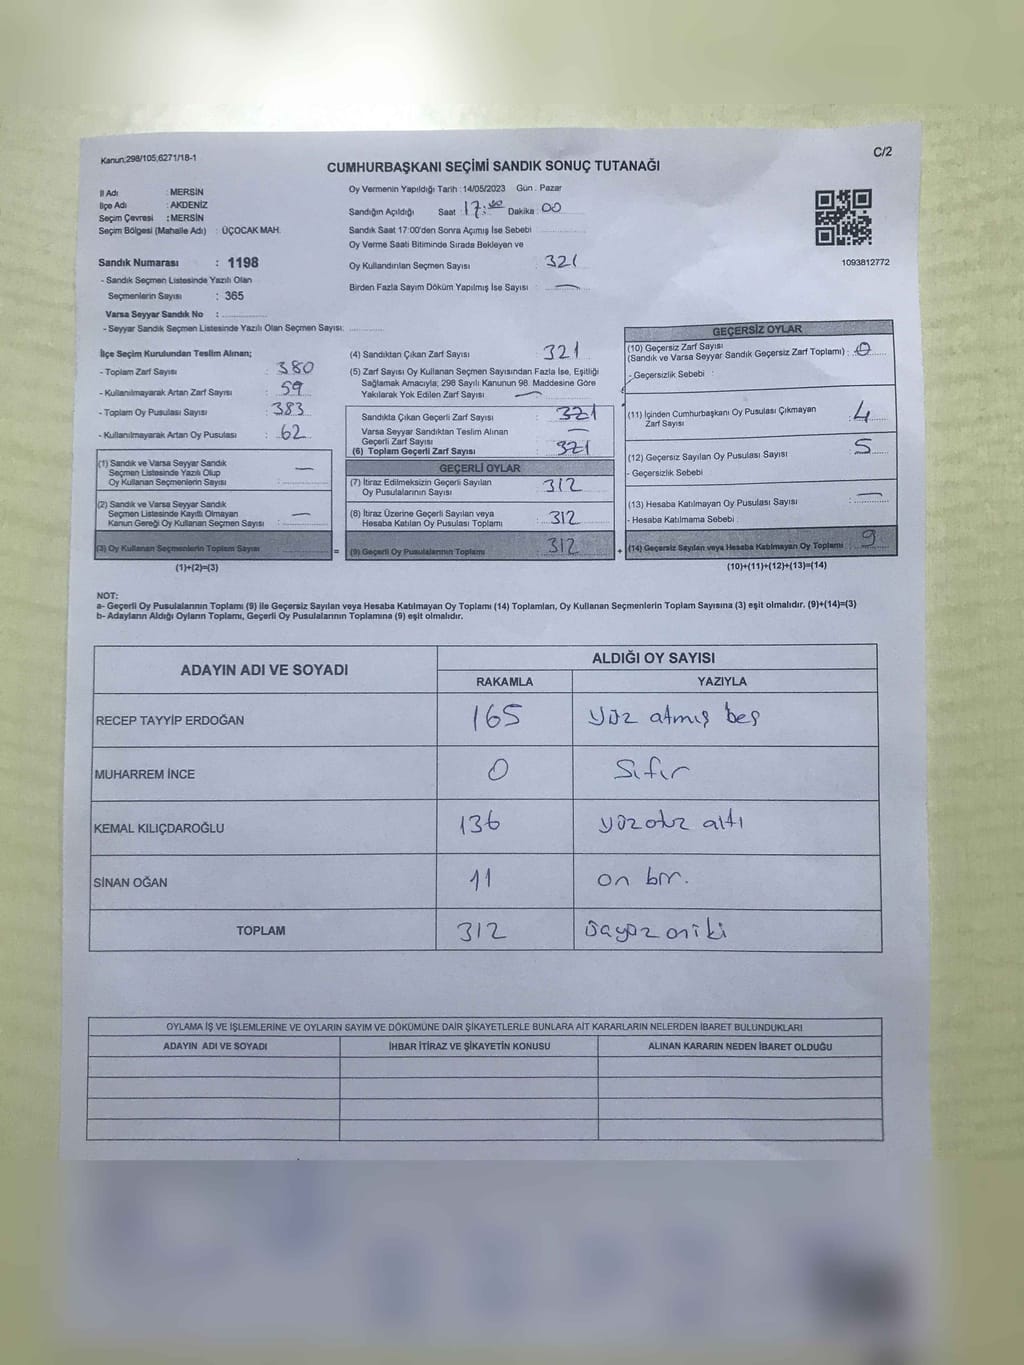 Kanun;298/105,6271/18-1
C/2
CUMHURBAŞKANI SEÇİMİ SANDIK SONUÇ TUTANAĞI
İl Adı : MERSİN
İlçe Adı : AKDENİZ
Seçim Çevresi : MERSİN
Seçim Bölgesi (Mahalle Adı) : ÜÇOCAK MAH.
Sandık Numarası : 1198
- Sandık Seçmen Listesinde Yazılı Olan
Seçmenlerin Sayısı : 365
Varsa Seyyar Sandık No :
- Seyyar Sandık Seçmen Listesinde Yazılı Olan Seçmen Sayısı:
Oy Vermenin Yapıldığı Tarih : 14/05/2023 Gün : Pazar
Sandığın Açıldığı Saat : 17:00 Dakika 00
Sandık Saat 17:00'den Sonra Açımış İse Sebebi
Oy Verme Saati Bitiminde Sırada Bekleyen ve
Oy Kullandırılan Seçmen Sayısı : 321
Birden Fazla Sayım Döküm Yapılmış İse Sayısı : —
1093812772
İlçe Seçim Kurulundan Teslim Alınan;
- Toplam Zarf Sayısı : 380
- Kullanılmayarak Artan Zarf Sayısı : 59
- Toplam Oy Pusulası Sayısı : 383
- Kullanılmayarak Artan Oy Pusulası : 62
(1) Sandık ve Varsa Seyyar Sandık
Seçmen Listesinde Yazılı Olup
Oy Kullanan Seçmenlerin Sayısı : —
(2) Sandık ve Varsa Seyyar Sandık
Seçmen Listesinde Kayıtlı Olmayan
Kanun Gereği Oy Kullanan Seçmen Sayısı : —
(3) Oy Kullanan Seçmenlerin Toplam Sayısı =
(1)+(2)=(3)
(4) Sandıktan Çıkan Zarf Sayısı : 321
(5) Zarf Sayısı Oy Kullanan Seçmen Sayısından Fazla İse, Eşitliği
Sağlamak Amacıyla, 298 Sayılı Kanunun 98. Maddesine Göre
Yakılarak Yok Edilen Zarf Sayısı : —
Sandıkta Çıkan Geçerli Zarf Sayısı : 321
Varsa Seyyar Sandıktan Teslim Alınan
Geçerli Zarf Sayısı : —
(6) Toplam Geçerli Zarf Sayısı : 321
GEÇERLİ OYLAR
(7) İtiraz Edilmeksizin Geçerli Sayılan
Oy Pusulalarının Sayısı : 312
(8) İtiraz Üzerine Geçerli Sayılan veya
Hesaba Katılan Oy Pusulası Toplamı : 312
(9) Geçerli Oy Pusulalarının Toplamı : 312 +
GEÇERSİZ OYLAR
(10) Geçersiz Zarf Sayısı
(Sandık ve Varsa Seyyar Sandık Geçersiz Zarf Toplamı) : 0
- Geçersizlik Sebebi :
(11) İçinden Cumhurbaşkanı Oy Pusulası Çıkmayan
Zarf Sayısı : 4
(12) Geçersiz Sayılan Oy Pusulası Sayısı : 5
- Geçersizlik Sebebi
(13) Hesaba Katılmayan Oy Pusulası Sayısı : —
- Hesaba Katılmama Sebebi
(14) Geçersiz Sayılan veya Hesaba Katılmayan Oy Toplamı : 9
(10)+(11)+(12)+(13)=(14)
NOT:
a- Geçerli Oy Pusulalarının Toplamı (9) ile Geçersiz Sayılan veya Hesaba Katılmayan Oy Toplamı (14) Toplamları, Oy Kullanan Seçmenlerin Toplam Sayısına (3) eşit olmalıdır. (9)+(14)=(3)
b- Adayların Aldığı Oyların Toplamı, Geçerli Oy Pusulalarının Toplamına (9) eşit olmalıdır.
ADAYIN ADI VE SOYADI
ALDIĞI OY SAYISI
RAKAMLA YAZIYLA
RECEP TAYYİP ERDOĞAN 165 yüz atmış beş
MUHARREM İNCE 0 Sıfır
KEMAL KILIÇDAROĞLU 136 yüzotuz altı
SİNAN OĞAN 11 on bir.
TOPLAM 312 üçyüz oniki
OYLAMA İŞ VE İŞLEMLERİNE VE OYLARIN SAYIM VE DÖKÜMÜNE DAİR ŞİKAYETLERLE BUNLARA AİT KARARLARIN NELERDEN İBARET BULUNDUKLARI
ADAYIN ADI VE SOYADI İHBAR İTİRAZ VE ŞİKAYETİN KONUSU ALINAN KARARIN NEDEN İBARET OLDUĞU